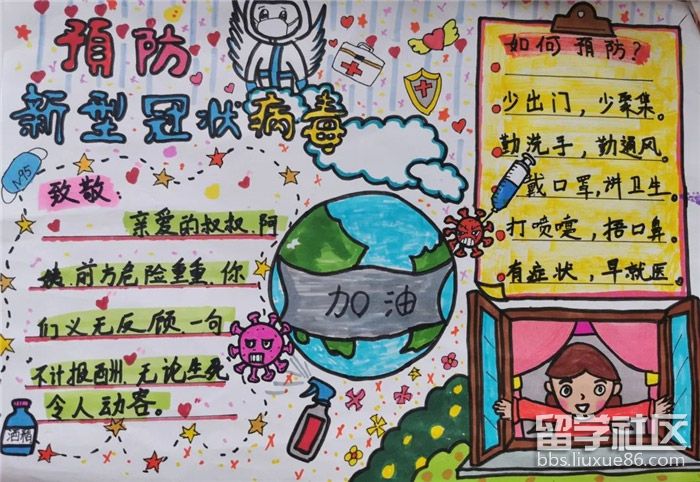 预防
新型冠状病毒
N95
致敬:
亲爱的叔叔、阿
姨,前方危险重重,你
们义无反顾,一句
不计报酬,无论生死
令人动容。
酒精
加油
如何预防?
少出门,少聚集。
勤洗手,勤通风。
戴口罩,讲卫生。
打喷嚏,捂口鼻。
有症状,早就医。
留学社区
bbs.liuxue86.com